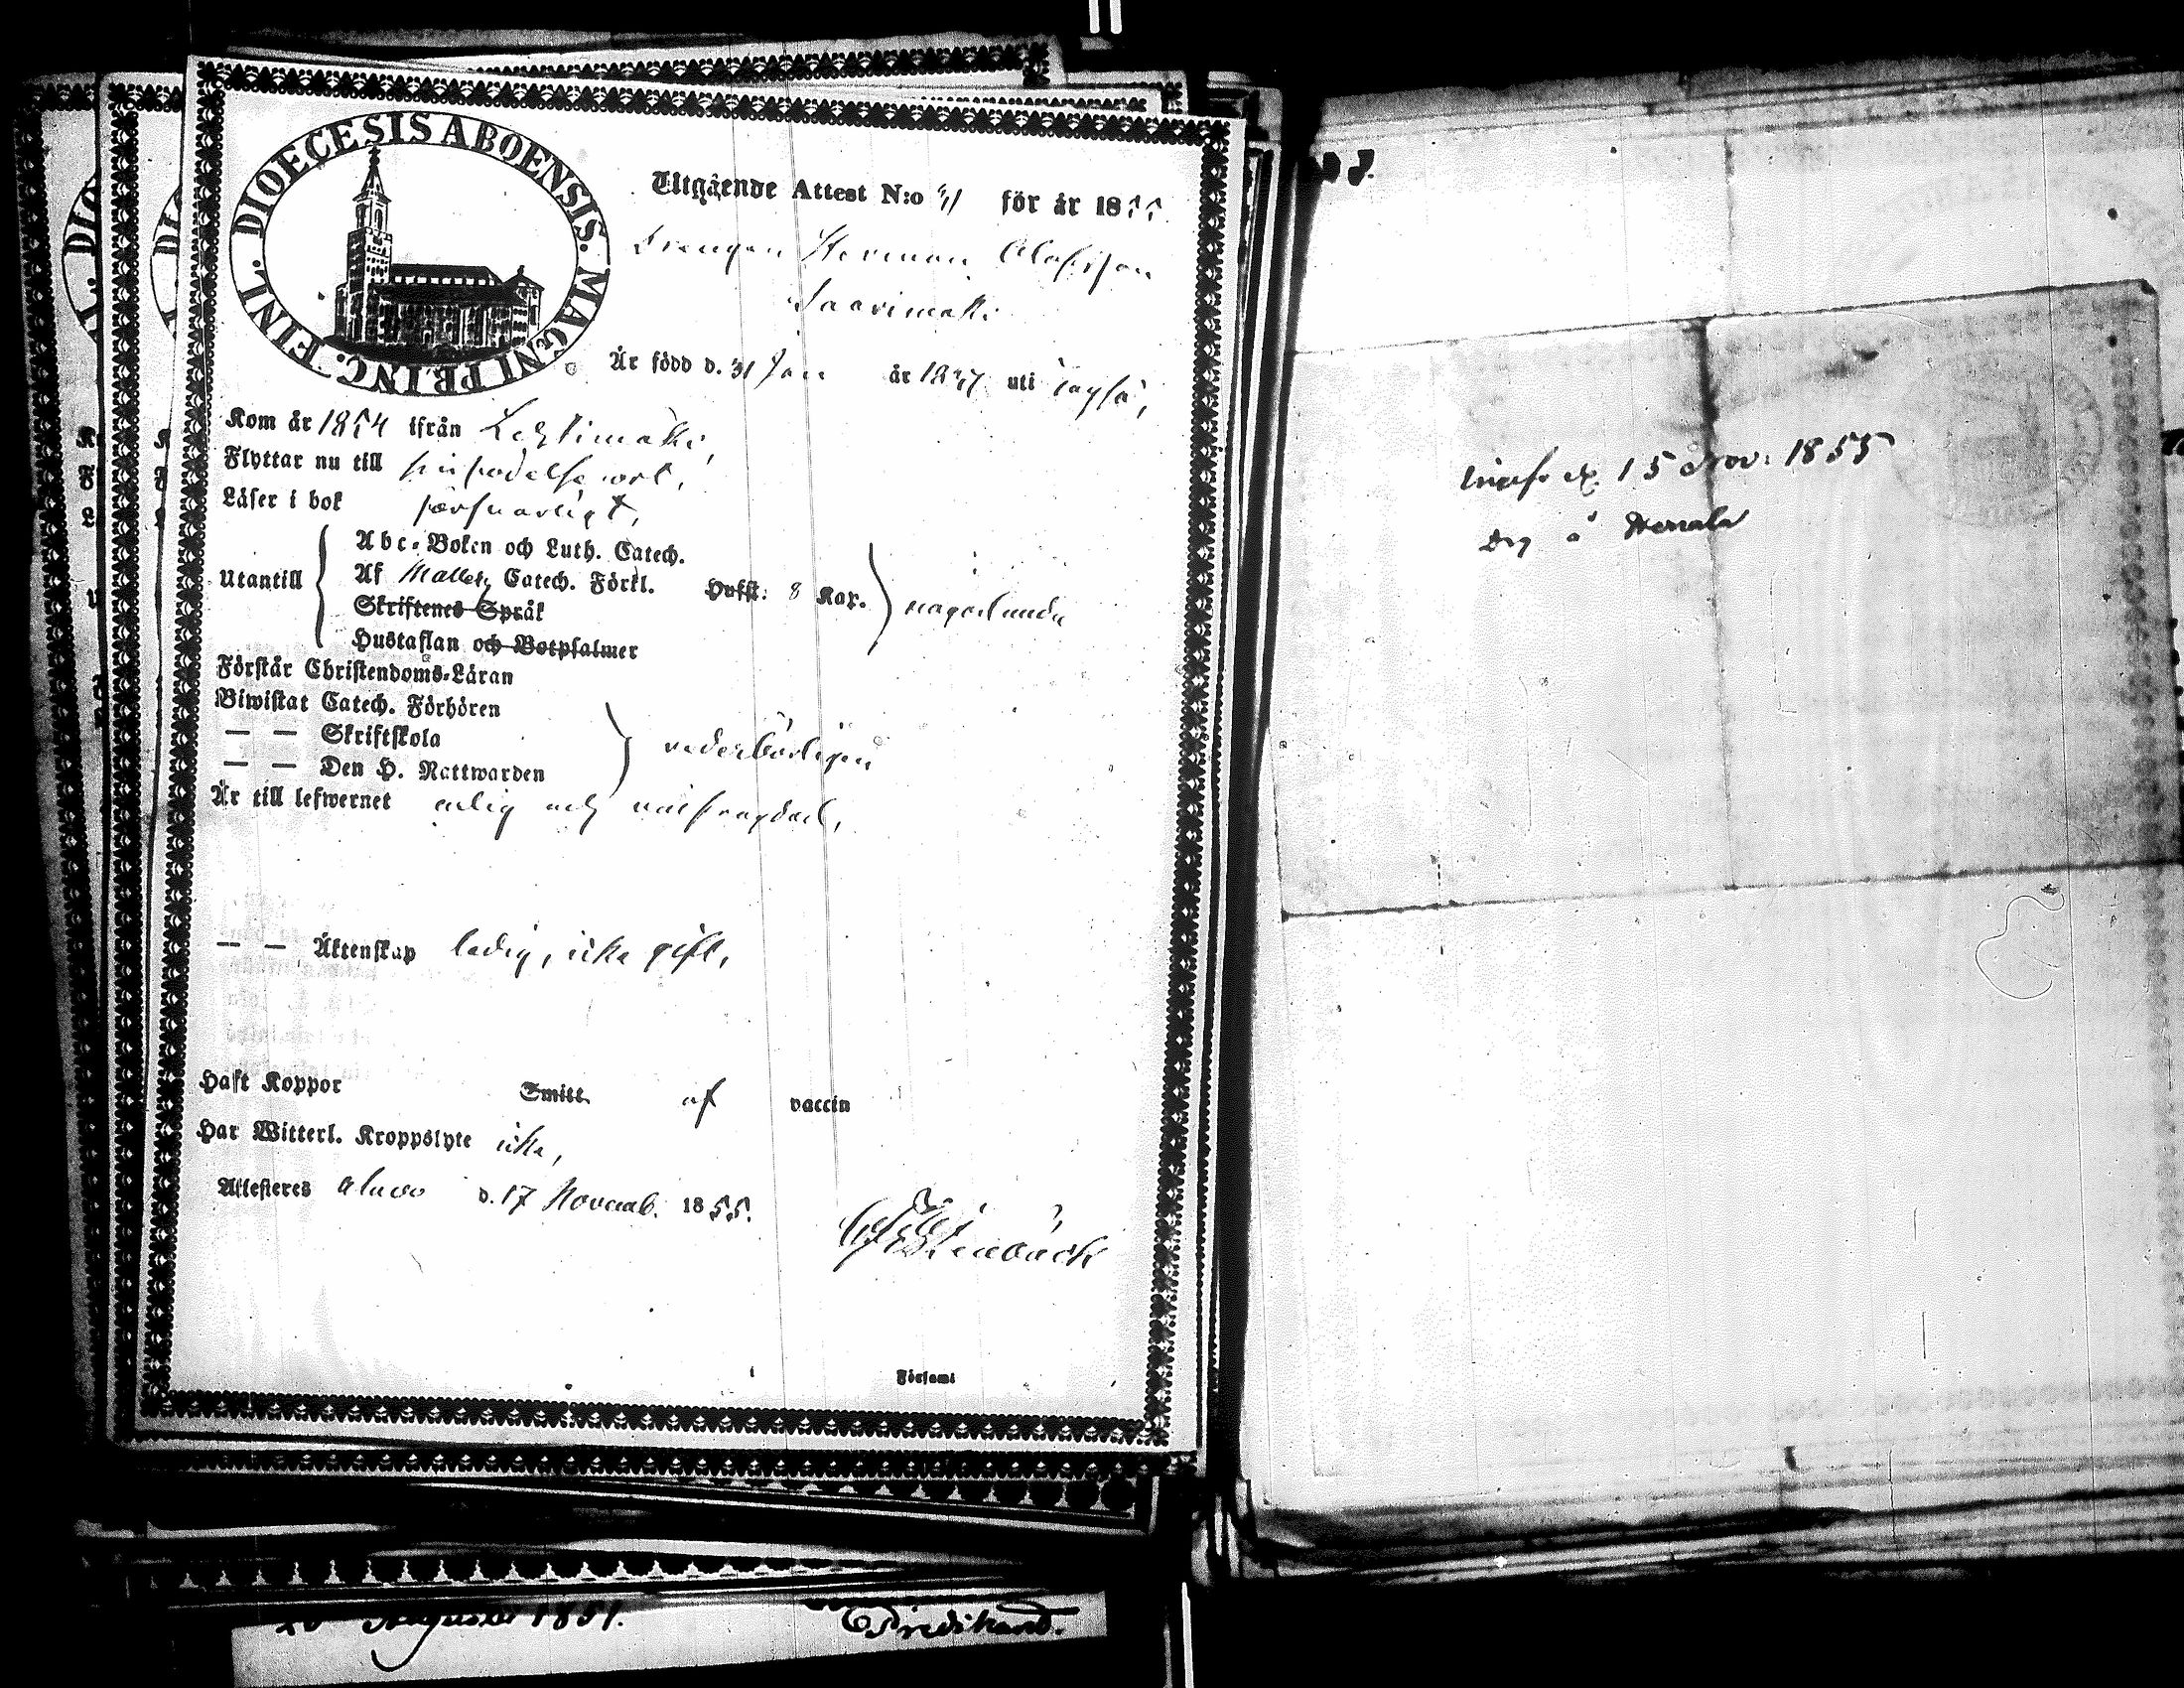 DIOECESIS ABOENSIS. MAGNI PRINC. FINL.
Utgående Attest N:o 31 för år 1855
Drengen Herman Olofsson
Saarimäki
Är född d. 31 Jan år 1837 uti
Kom år 1854 ifrån Lehtimäki,
Flyttar nu till sin födelse ort,
Läser i bok försvarligt,
Utantill
Abc-Boken och Luth. Catech.
Af Catech. Förkl. Hufst: 8 Kap. någorlunda
Skriftenes Språk
Hustaflan och Botpsalmer
Förstår Christendoms-Läran
Biwistat Catech. Förhören
— — Skriftskola vederbörligen
— — Den H. Nattwarden
Är till lefwernet ärlig och välfrägdad,
— — Äktenskap ledig, icke gift,
Haft Koppor Smitt af vaccin
Har Witterl. Kroppslyte icke,
Attesteres Alavo d. 17 Novemb. 1855.
Stenbäck
Församl
d. 15 Nov: 1855
Drg å
Augusti 1851.
Predikand.